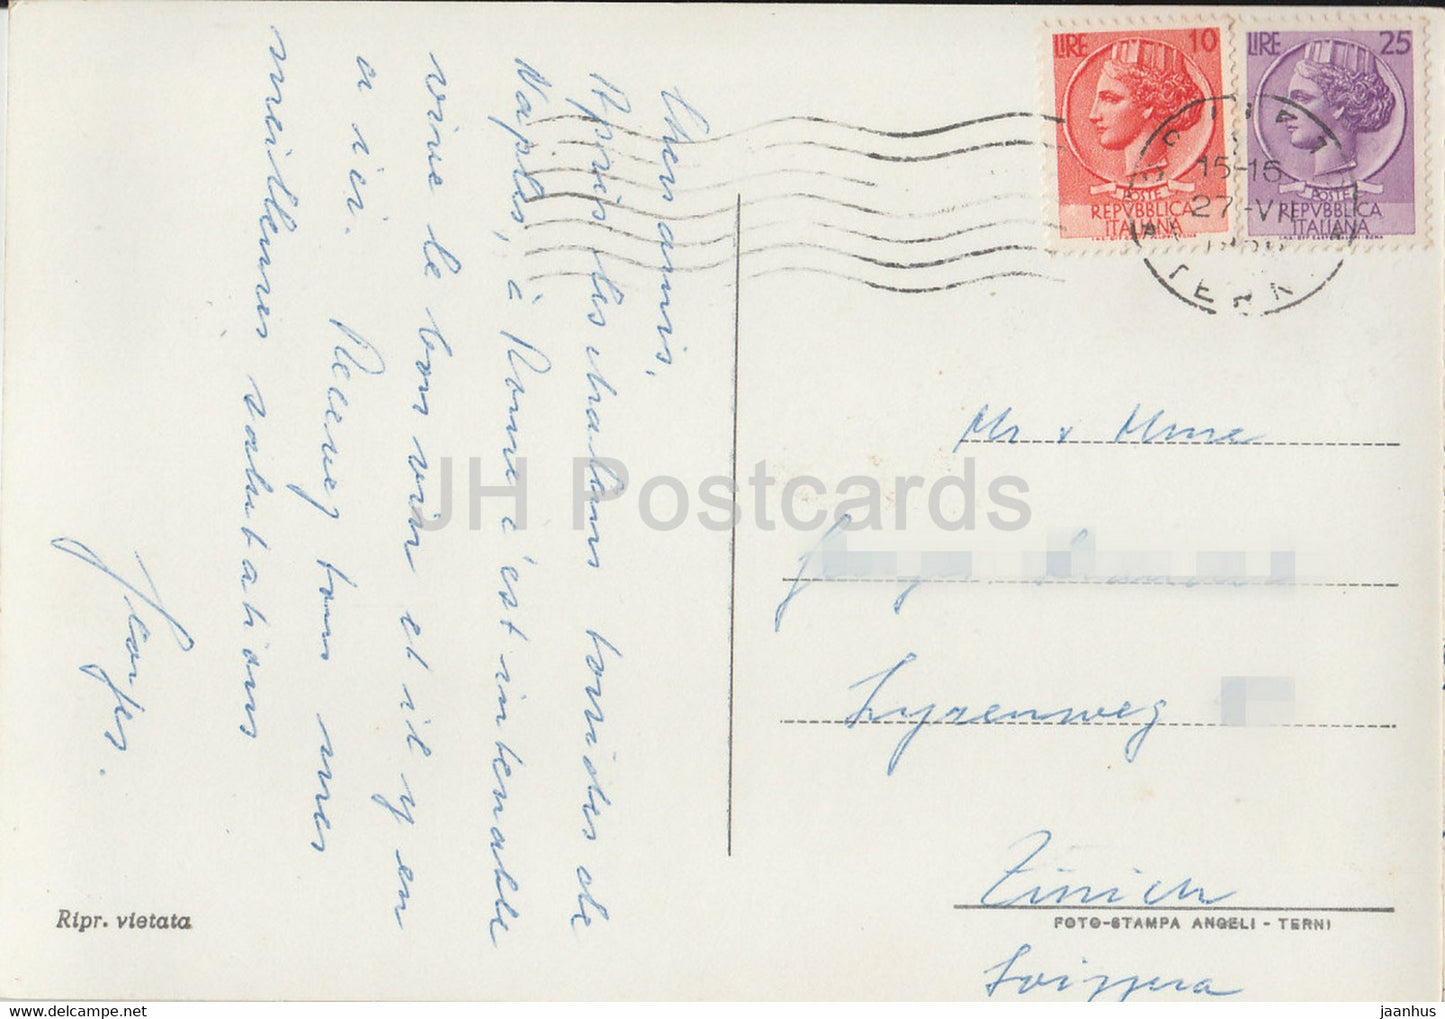 Chers amis,
Après les chaleurs torrides de
Naples, à Rome c'est intenable
vive le bon vin et il y en
a ici. Recevez tous mes
meilleures salutations
Georges.
Ripr. vietata
LIRE 10
POSTE
REPVBBLICA
ITALIANA
LIRE 25
REPVBBLICA
ITALIANA
15-16
27-VI
TERNI
Mr & Mme
Lyrenweg
Zürich
FOTO-STAMPA ANGELI - TERNI
Svizzera
JH Postcards
www.jhpostcard-online.com
jaanhus